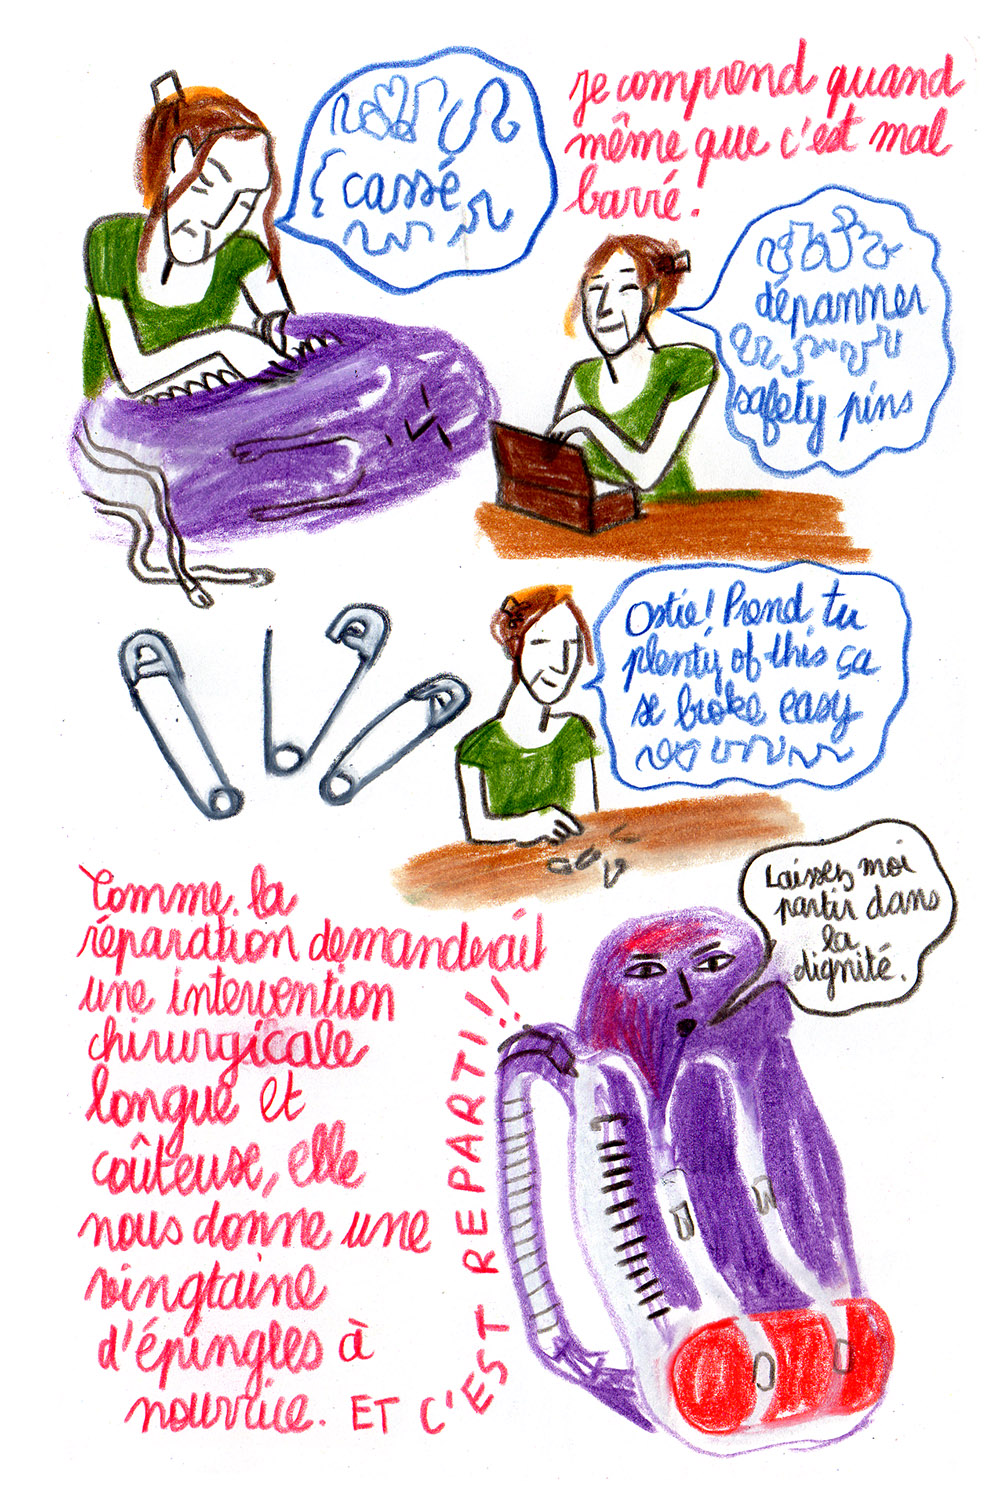 cassé
Je comprend quand
même que c'est mal
barré!
dépanner
safety pins
Ostie! Prend tu
plenty of this ça
se broke easy
Comme la
réparation demanderait
une intervention
chirurgicale
longue et
coûteuse, elle
nous donne une
vingtaine
d'épingles à
nourrice.
ET C'EST REPARTI!!
Laissez moi
partir dans
la
dignité.